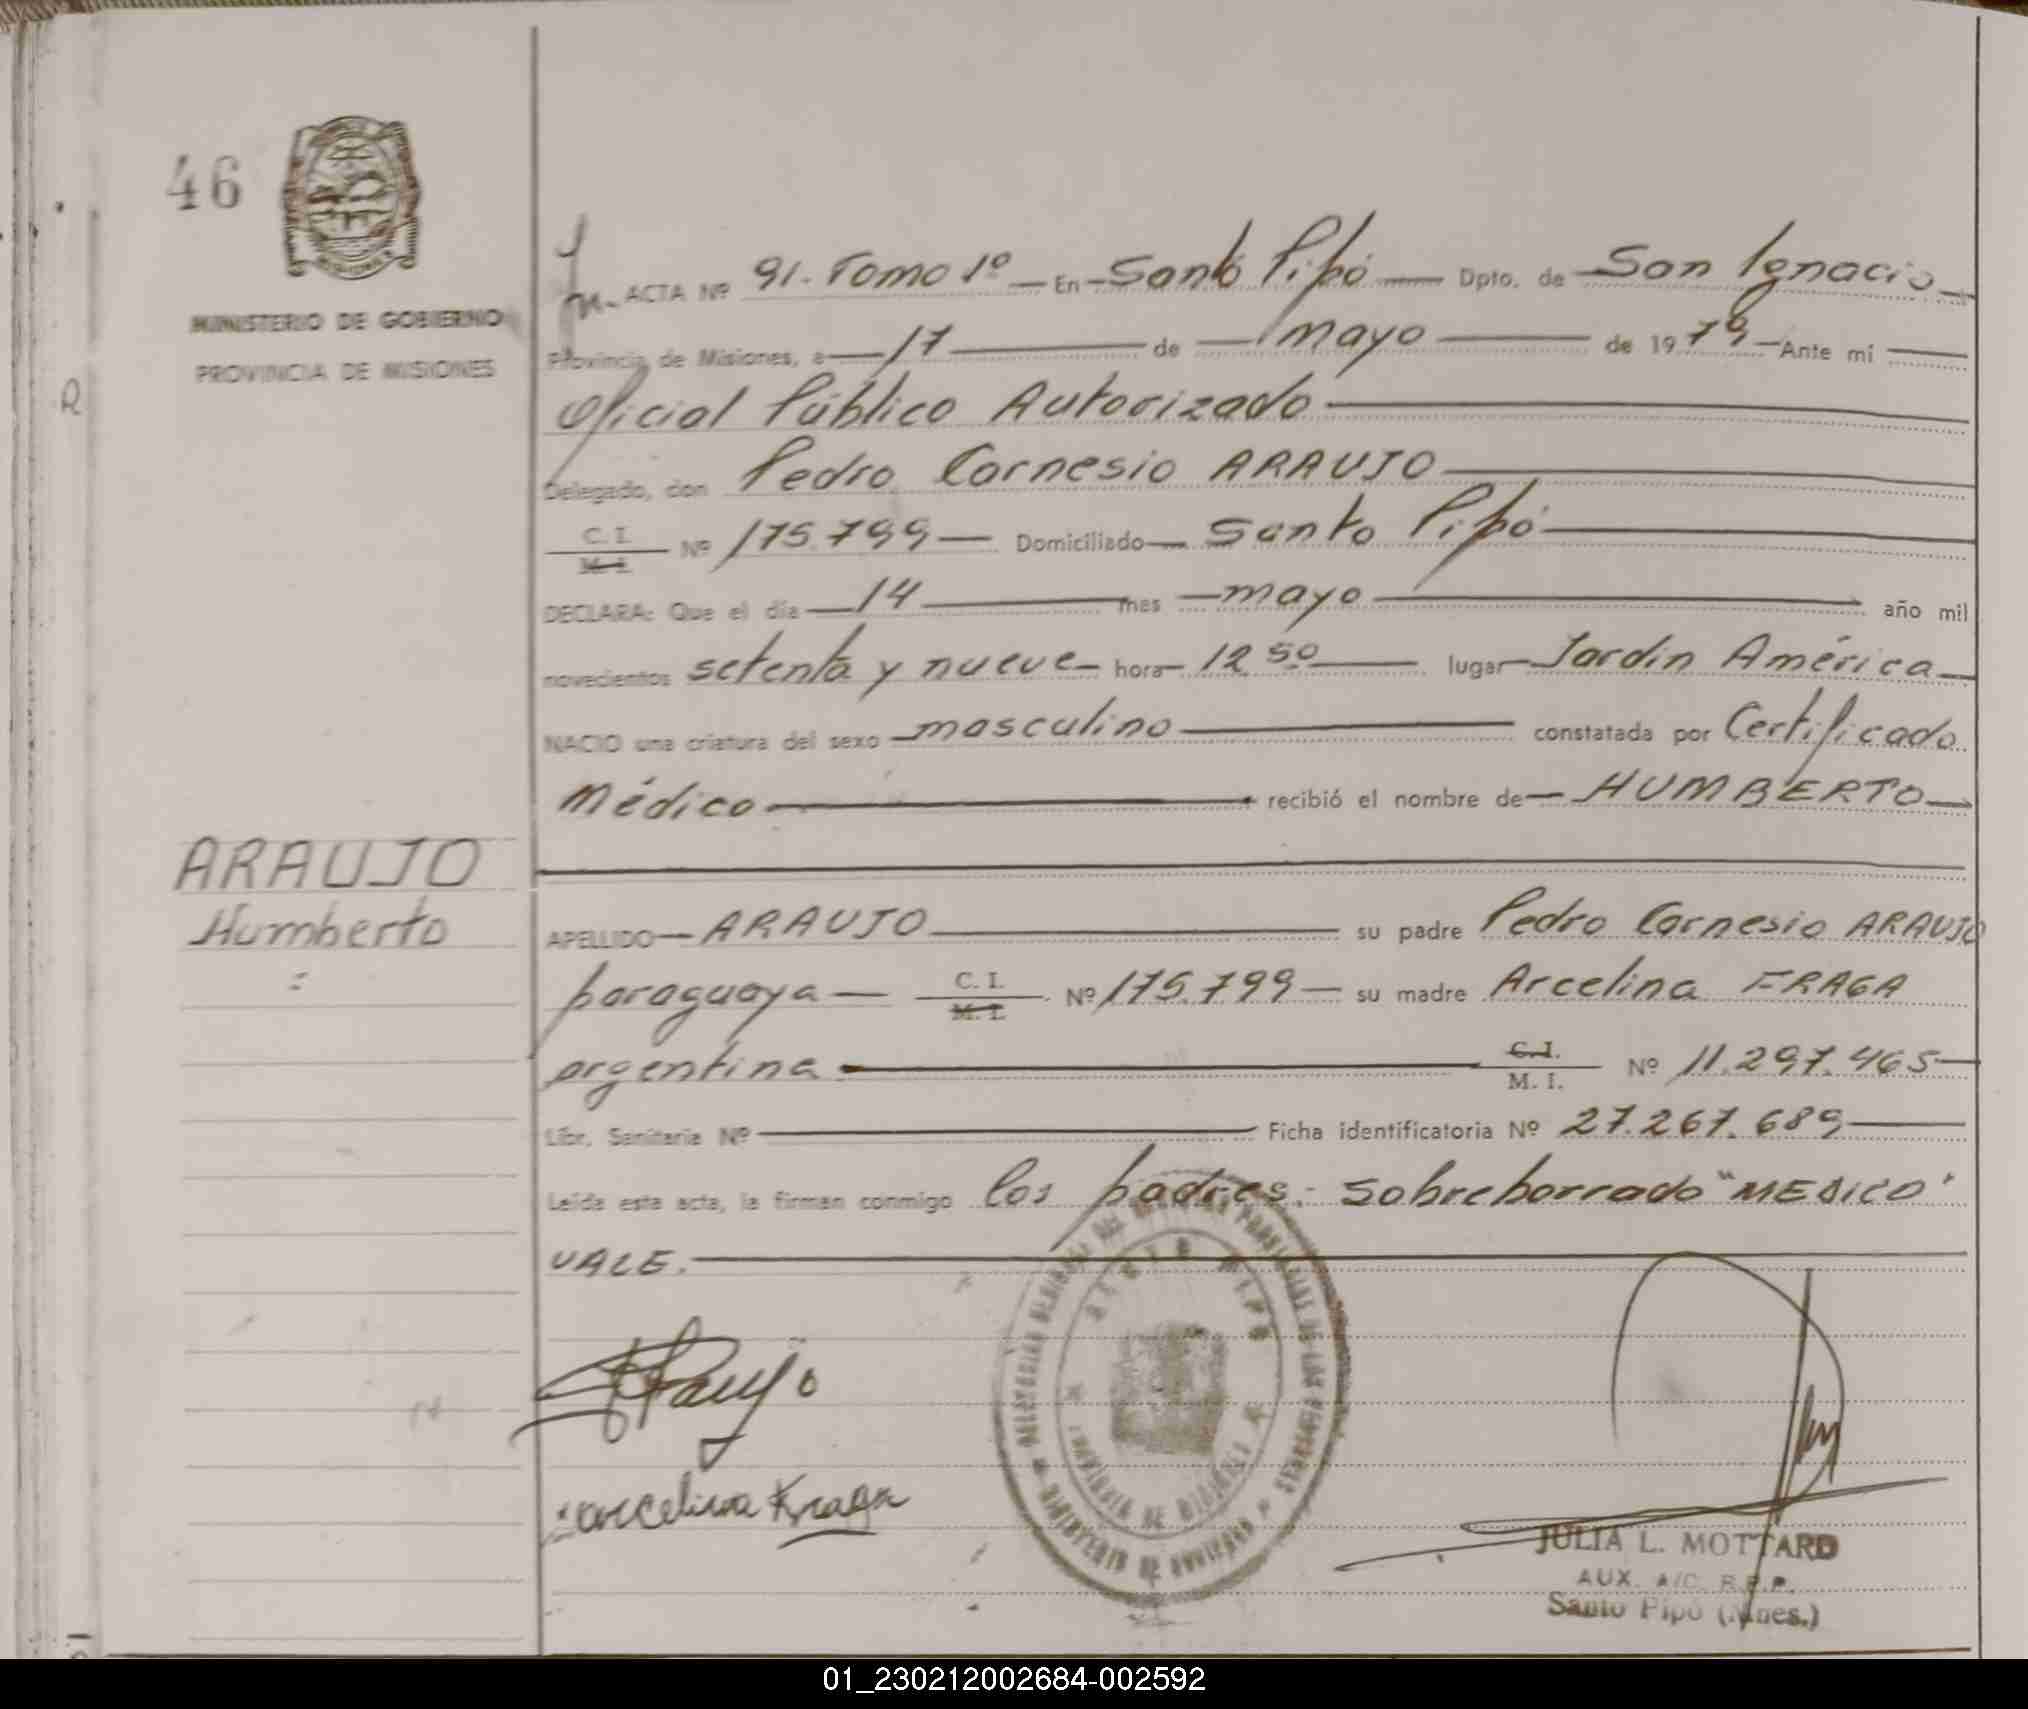 46
MINISTERIO DE GOBIERNO
PROVINCIA DE MISIONES
R
ACTA Nº 91. Tomo 1º En Santo Pipó Dpto. de San Ignacio
Provincia de Misiones, a 17 de mayo de 1979 Ante mí
Oficial Público Autorizado
Delegado, don Pedro Carnesio ARAUJO
C. I.
M. I. Nº 175.799 Domiciliado Santo Pipó
DECLARA: Que el día 14 mes mayo año mil
novecientos setenta y nueve hora 12 50 lugar Jardin América
NACIO una criatura del sexo masculino constatada por Certificado
Médico recibió el nombre de HUMBERTO
ARAUJO
Humberto
APELLIDO ARAUJO su padre Pedro Carnesio ARAUJO
paraguaya C. I. M. I. Nº 175.799 su madre Arcelina FRAGA
argentina C. I. M. I. Nº 11.297.465
Libr. Sanitaria Nº Ficha identificatoria Nº 27.267.689
Leída esta acta, la firman conmigo los padres.- Sobreborrado "MEDICO"
VALE.
SANTO PIPO
PROVINCIA DE MISIONES
MINISTERIO DE GOBIERNO
Araujo
arcelina Fraga
JULIA L. MOTTARD
AUX. A/C. R.P.P.
Santo Pipó (Mnes.)
01_230212002684-002592